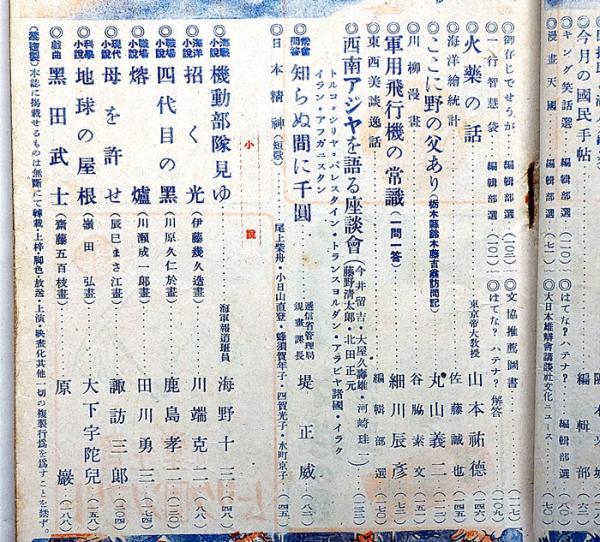 今月の國民手帖……編輯部
キング笑話選……編輯部選(一一〇)
漫畫天國……編輯部選(七一)
◇はてな?ハテナ?……編輯部選(八〇)
◇大日本雄辯會講談社文化ニュース
◇御存じでせうが……編輯部選(一〇三)
◇一行智慧袋……編輯部選(一〇一)
◇文協推薦圖書……(一一七)
◇はてな?ハテナ?解答……(一〇九)
火藥の話……東京帝大教授 山本祐德(四六)
海洋繪統計……佐藤誠也
ここに野の父あり(栃木縣鈴木藤吉翁訪問記)……丸山義二
川柳漫畫……谷脇素文
軍用飛行機の常識(一問一答)……細川辰彦
東西美談逸話……編輯部選(七〇)
西南アジヤを語る座談會(今井留吉・大屋久壽雄・河崎珪一 藤野清太郎・北田正元)
トルコ・シリヤ・パレスタイン・トランスヨルダン・アラビヤ諸國・イラク
イラン・アフガニスタン
常會問答 知らぬ間に千圓……遞信省管理局規畫課長 堤正威(八二)
日本精神(短歌)……尾上柴舟・小日山直登・蜂須賀年子・四賀光子・水町京子(四五)
小說
海戰小說 機動部隊見ゆ……海軍報道班員 海野十三
海洋小說 招く光(伊藤幾久造畫)……川端克二
職場小說 四代目の黑(川原久仁於畫)……鹿島孝二
職場小說 熔爐(川瀬成一郎畫)……田川勇三
現代小說 母を許せ(辰巳まさ江畫)……諏訪三郎(二〇四)
科學小說 地球の屋根(嶺田弘畫)……大下宇陀兒(一五八)
戲曲 黑田武士(齋藤五百枝畫)……原巖(一八八)
(禁複製)本誌に掲載せるものは無斷にて轉載・上梓・脚色・放送・上演・映畫化其他一切の複製行爲を爲すことを禁ず。